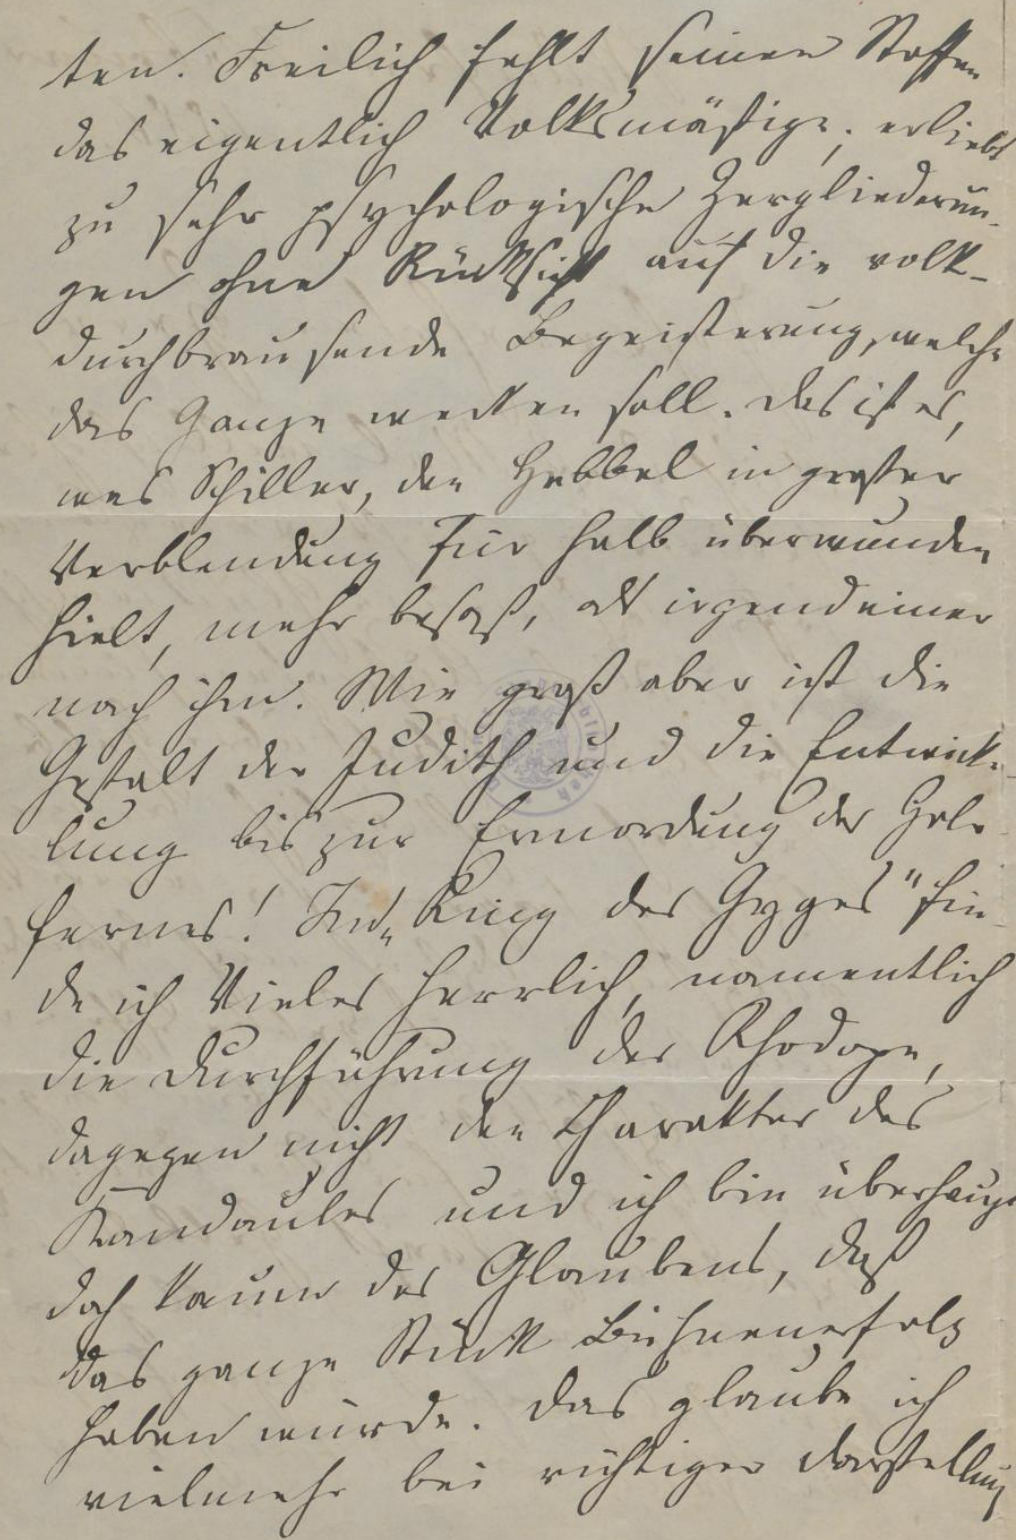 ten. Freilich fehlt seinen Stoffen
das eigentlich Volksmäßige; er liebt
zu sehr psychologische Zergliederun-
gen ohne Rücksicht auf die volk-
durchbrausende Begeisterung, welche
das Ganze wecken soll. Das ist es,
was Schiller, den Hebbel in großer
Verblendung für halb überwunden
hielt, mehr besaß, als irgend einer
nach ihm. Wie groß aber ist die
Gestalt der Judith und die Entwick-
lung bis zur Ermordung des Holo-
fernes! Im „Ring des Gyges" fin-
de ich Vieles herrlich, namentlich
die Durchführung der Rhodope,
dagegen nicht den Charakter des
Kandaules und ich bin überhaupt
doch kaum des Glaubens, daß
das ganze Stück Bühnenerfolg
haben würde. Das glaube ich
vielmehr bei richtiger Darstellung